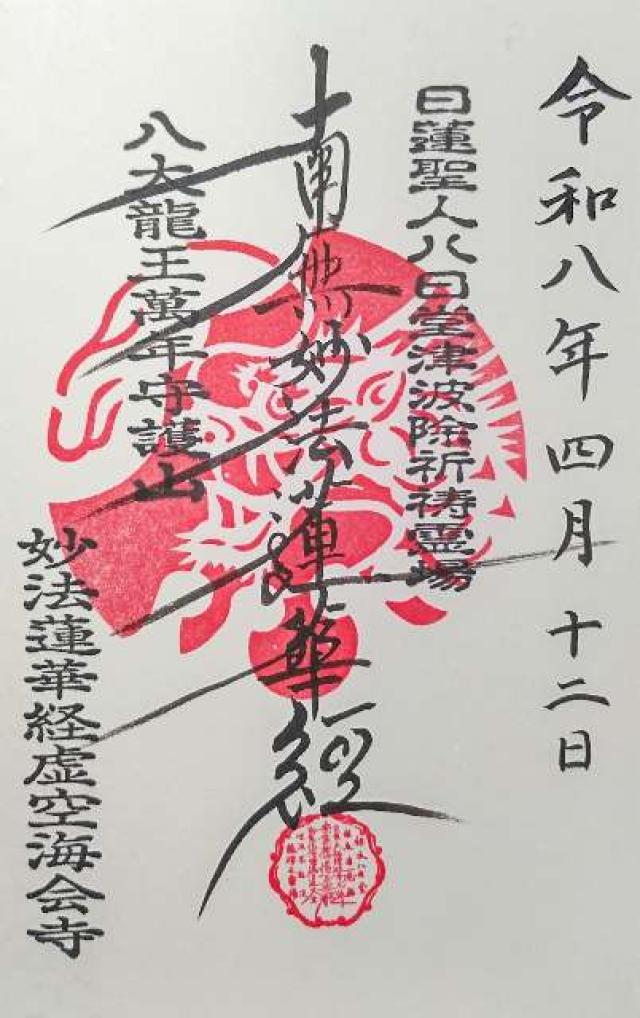 令和八年四月十二日
日蓮聖人八日堂津波除祈祷霊場
南無妙法蓮華経
八大龍王萬年守護山
妙法蓮華経虚空海会寺